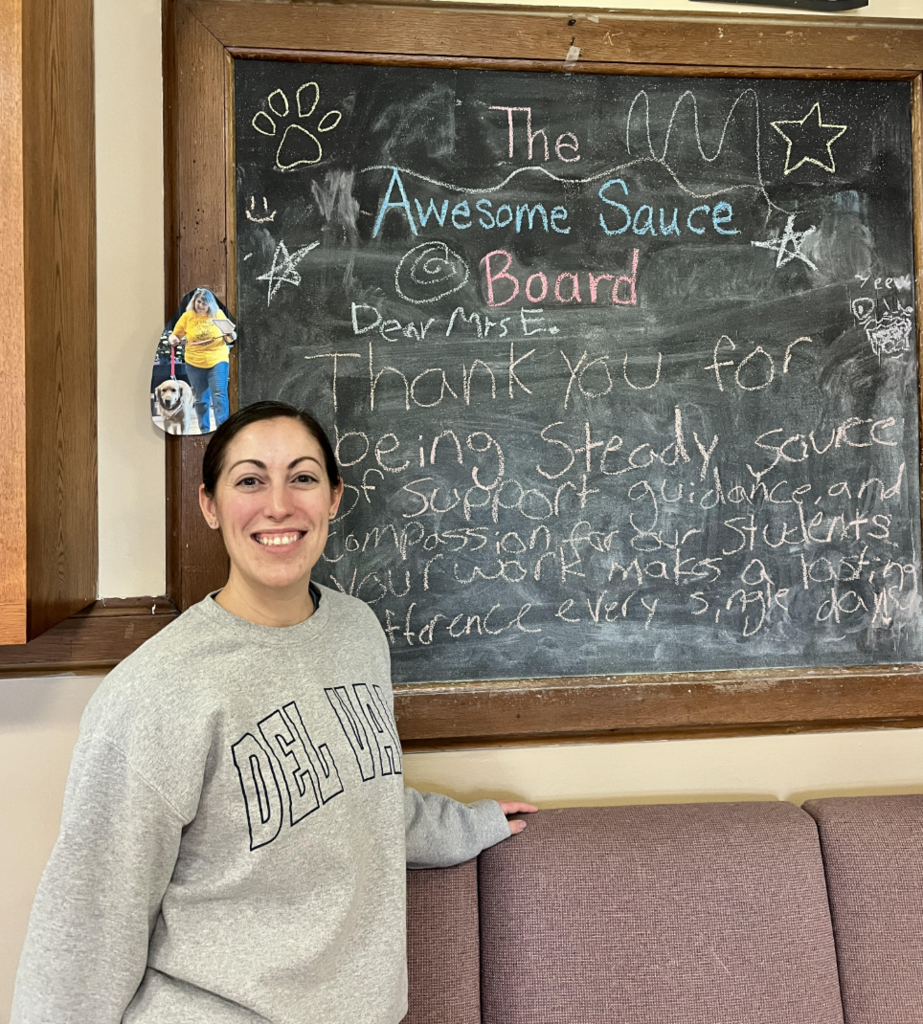 The
Awesome Sauce
Board
Dear Mrs E.
Thank you for
being Steady source
of support guidance, and
compassion for our Students
your work makes a lasting
fference every single day
DEL VA